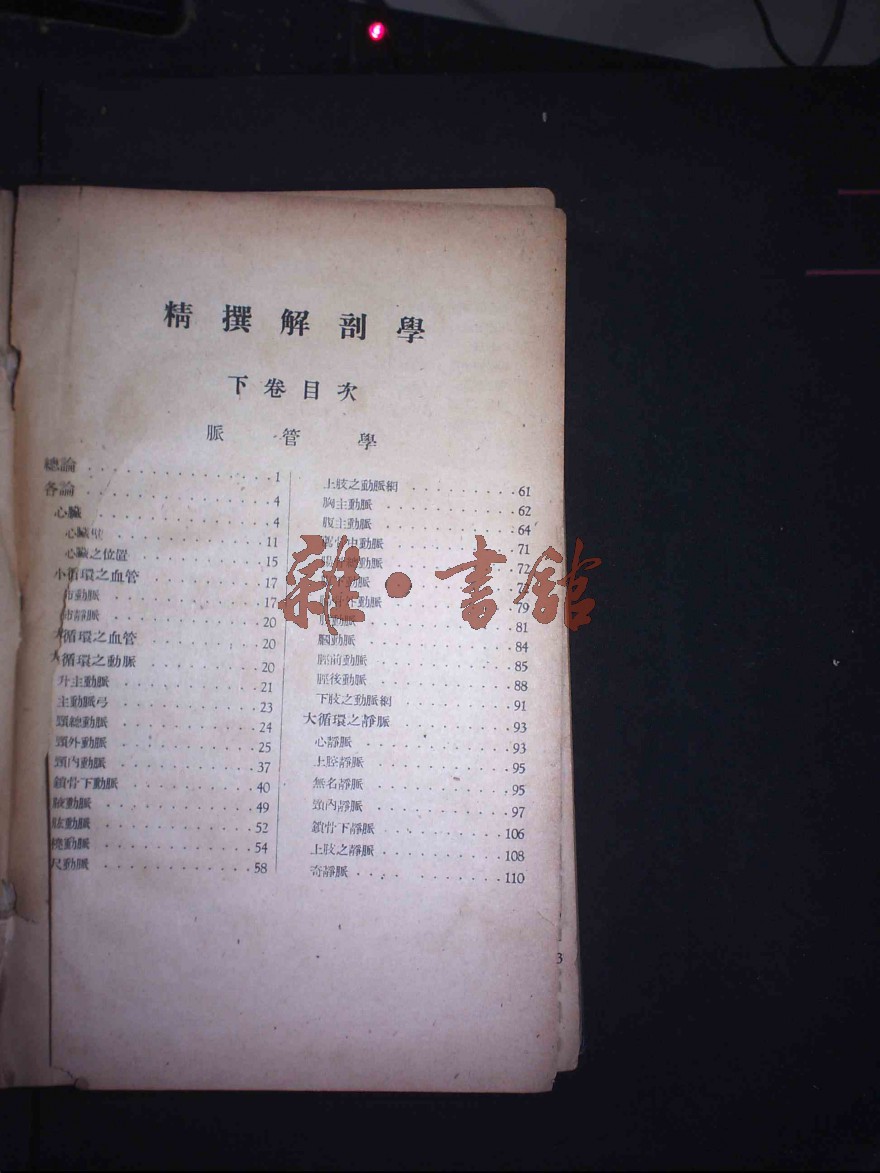 精撰解剖學
下卷目次
脈管學
總論 1
各論 4
心臟 4
心臟壁 11
心臟之位置 15
小循環之血管 17
肺動脈 17
肺靜脈 20
大循環之血管 20
大循環之動脈 20
升主動脈 21
主動脈弓 23
頸總動脈 24
頸外動脈 25
頸內動脈 37
鎖骨下動脈 40
腋動脈 49
肱動脈 52
橈動脈 54
尺動脈 58
上肢之動脈網 61
胸主動脈 62
腹主動脈 64
動脈 71
動脈 72
動脈
動脈 79
動脈 81
膕動脈 84
脛前動脈 85
脛後動脈 88
下肢之動脈網 91
大循環之靜脈 93
心靜脈 93
上腔靜脈 95
無名靜脈 95
頸內靜脈 97
鎖骨下靜脈 106
上肢之靜脈 108
奇靜脈 110
3
雜·書舘